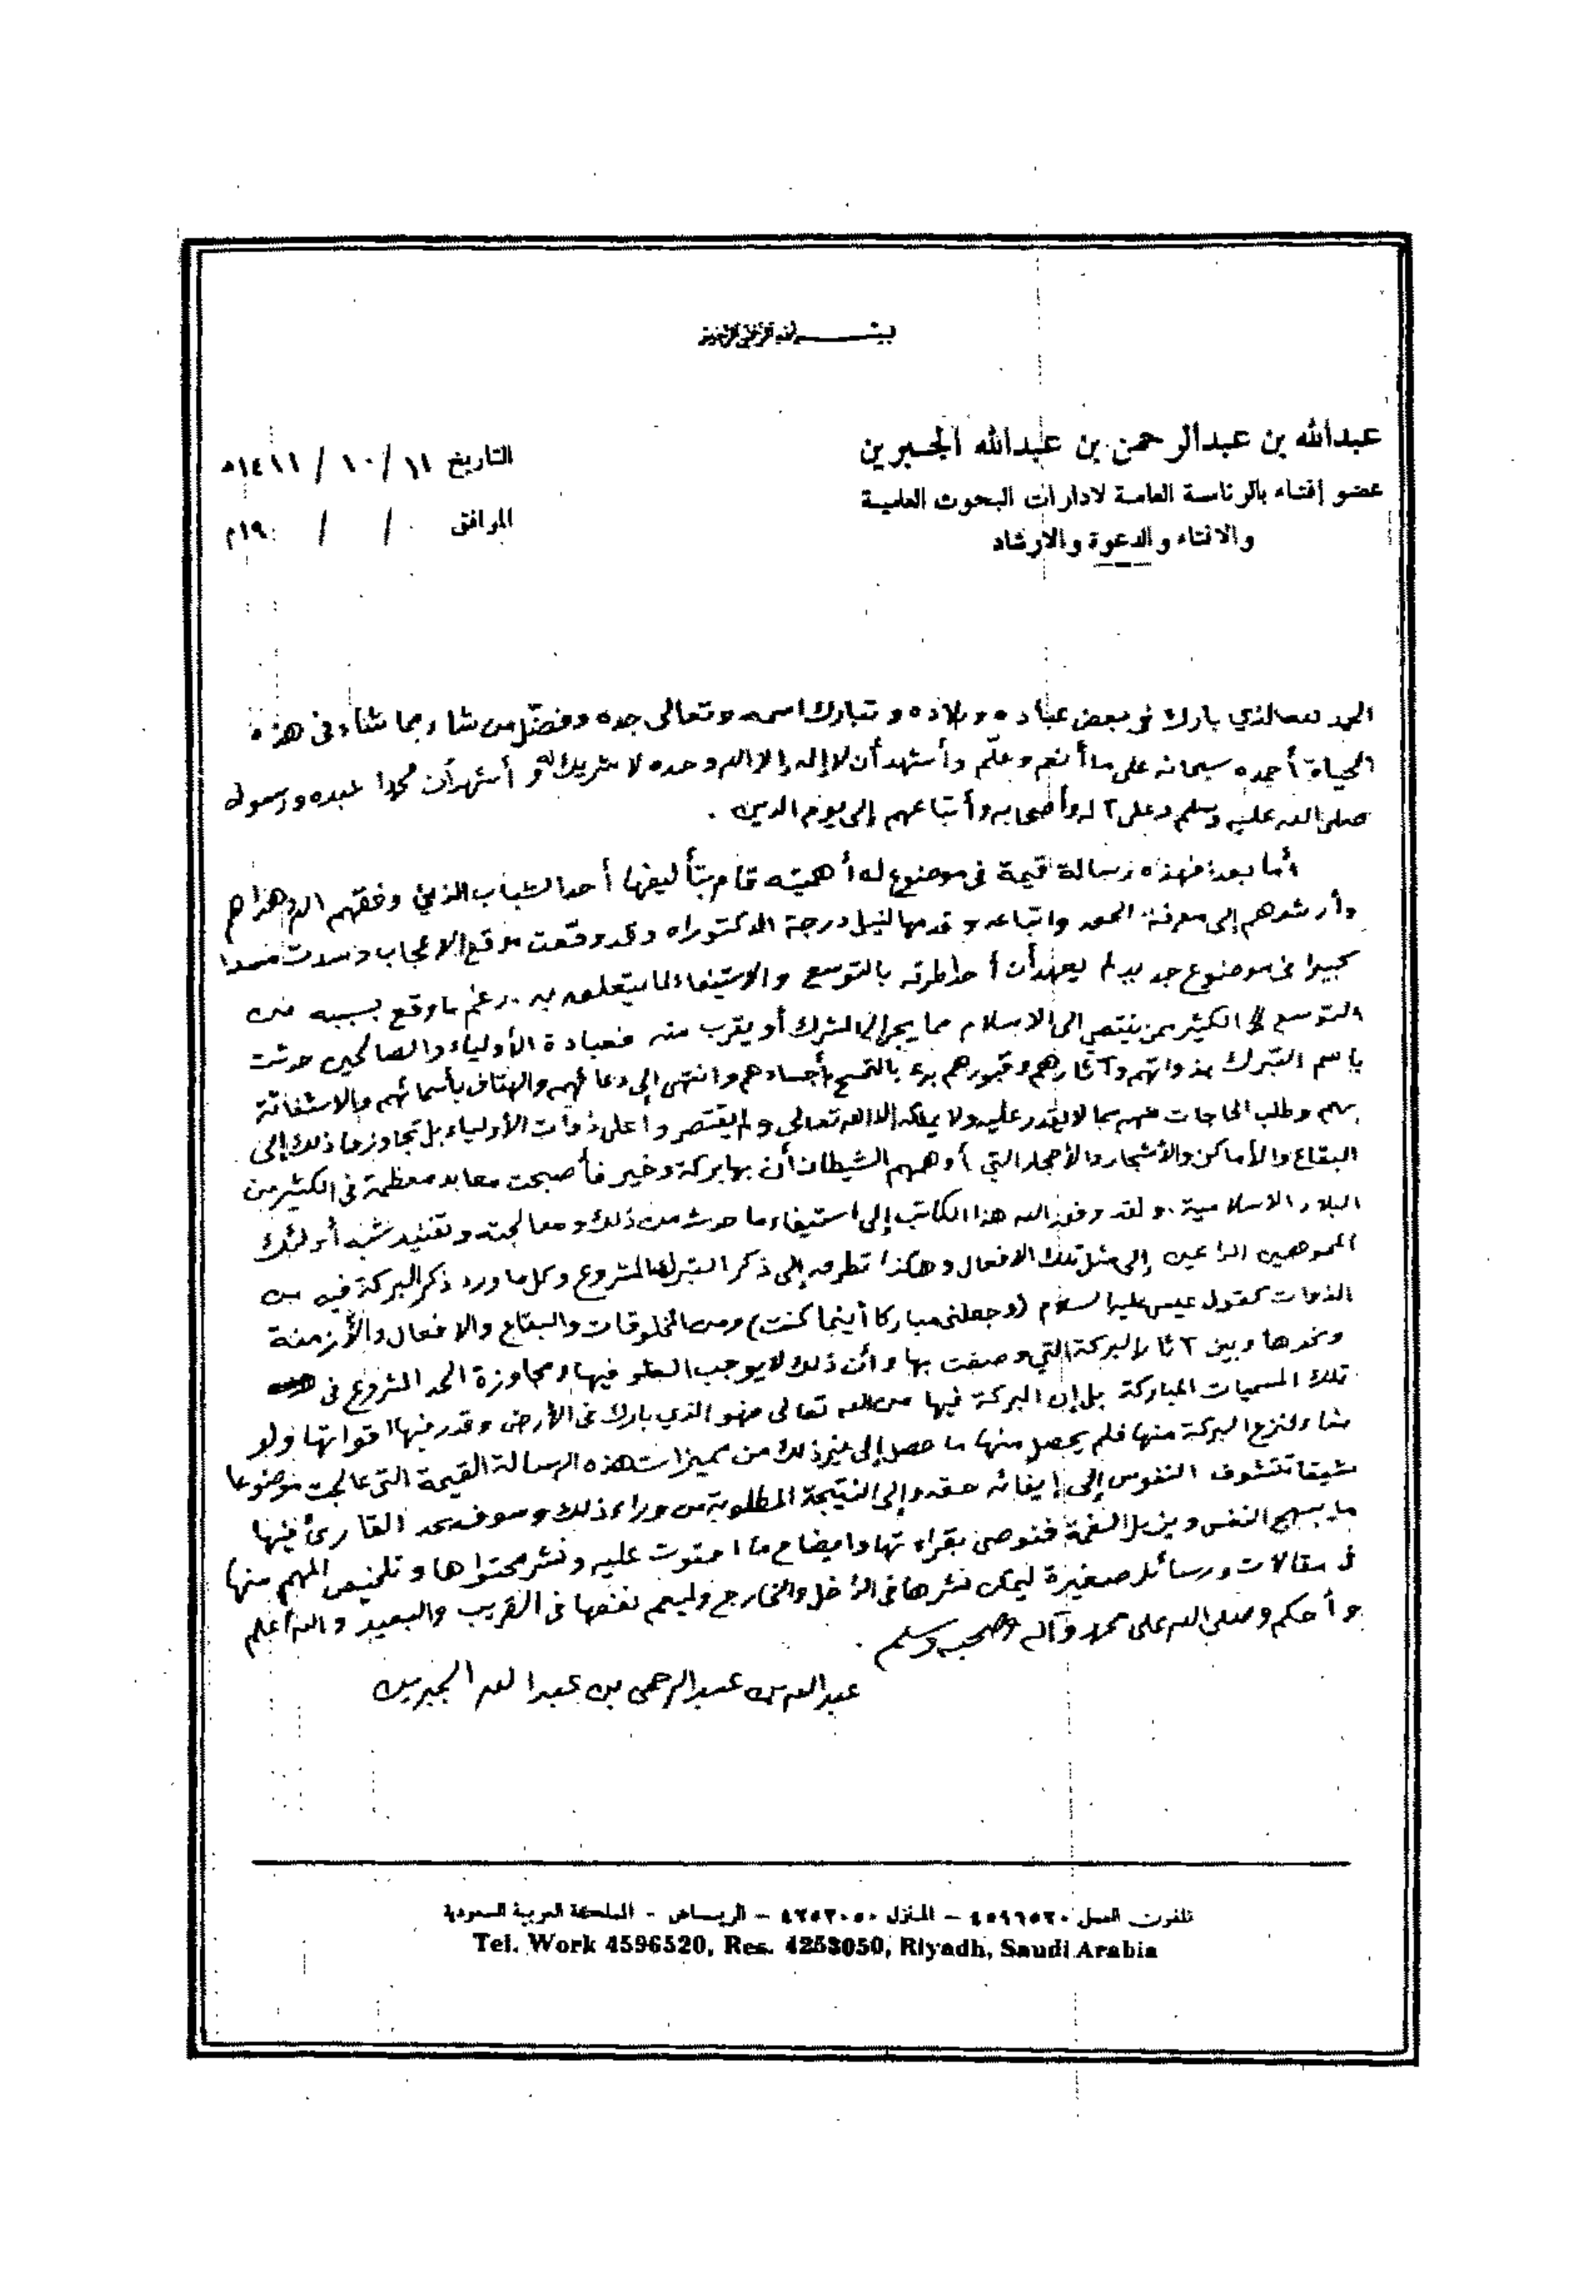 بسم الله الرحمن الرحيم
عبدالله بن عبدالرحمن بن عبدالله الجبرين
عضو إفتاء بالرئاسة العامة لادارات البحوث العلمية
والافتاء والدعوة والارشاد
التاريخ ١١ / ١٠ / ١٤١١هـ
الموافق / / ١٩٠م
الحمد لله الذي بارك في بعض عباده وبلاده وتبارك اسمه وتعالى جده وفضّل من شاء بما شاء في هذه
الحياة أحمده سبحانه على ما أنعم وعلّم وأشهد أن لا إله إلا الله وحده لا شريك له و أشهد أن محمدا عبده ورسوله
صلى الله عليه وسلم وعلى آله وأصحابه وأتباعهم إلى يوم الدين .
أما بعد: فهذه رسالة قيمة في موضوع له أهميته قام بتأليفها أحد الشباب الذين وفقهم الله وهداهم
وأرشدهم إلى معرفة الحق واتباعه وقدمها لنيل درجة الدكتوراه وقد وقعت موقع الاعجاب وسدت مسدا
كبيرا في موضوع جديد لم يعهد أن أحدا طرقه بالتوسع والاستيفاء لما يتعلق به . رغم ما وقع بسببه من
التوسع الكثير ممن ينتمي الى الاسلام مما يجر إلى الشرك أو يقرب منه فعبادة الأولياء والصالحين حدثت
باسم التبرك بذواتهم وآثارهم وقبورهم بدء بالتمسح بأجسادهم وانتهى إلى دعائهم والهتاف بأسمائهم والاستغاثة
بهم وطلب الحاجات منهم مما لا يقدر عليه ولا يملكه إلا الله تعالى ولم يقتصروا على ذوات الأولياء بل تجاوزوا ذلك إلى
البقاع والأماكن والأشجار والأحجار التي أوهمهم الشيطان أن بها بركة وخير فأصبحت معابد معظمة في الكثير من
البلاد الاسلامية . ولقد وفق الله هذا الكاتب إلى استيفاء ما حدث من ذلك ومعالجته وتفنيد شبه أولئك
المموهين الداعين إلى مثل تلك الافعال وهكذا تطرق إلى ذكر التبرك المشروع وكل ما ورد ذكر البركة فيه من
الذوات كقول عيسى عليه السلام (وجعلني مباركا أينما كنت) ومن المخلوقات والبقاع والافعال والأزمنة
ونحوها وبين آثار البركة التي وصفت بها وأن ذلك لا يوجب الغلو فيها ومجاوزة الحد المشروع في
تلك المسميات المباركة بل إن البركة فيها من الله تعالى فهو الذي بارك في الأرض وقدر فيها اقواتها ولو
شاء لنزع البركة منها فلم يحصل منها ما حصل إلى غير ذلك من مميزات هذه الرسالة القيمة التي عالجت موضوعا
شيقا تتشوف النفوس إلى إيفائه حقه وإلى النتيجة المطلوبة من وراء ذلك وسوف يجد القارئ فيها
ما يبهج النفس ويزيل الغمة فنوصي بقراءتها وايضاح ما احتوت عليه ونشر محتواها وتلخيص المهم منها
في مقالات ورسائل صغيرة ليمكن نشرها في الداخل والخارج وليعم نفعها في القريب والبعيد والله أعلم
وأحكم وصلى الله على محمد وآله وصحبه وسلم .
عبدالله بن عبدالرحمن بن عبدالله الجبرين
تلفون العمل ٤٥٩٦٥٢٠ - المنزل ٤٢٥٣٠٥٠ - الريـاض - المملكة العربية السعودية
Tel. Work 4596520, Res. 4253050, Riyadh, Saudi Arabia